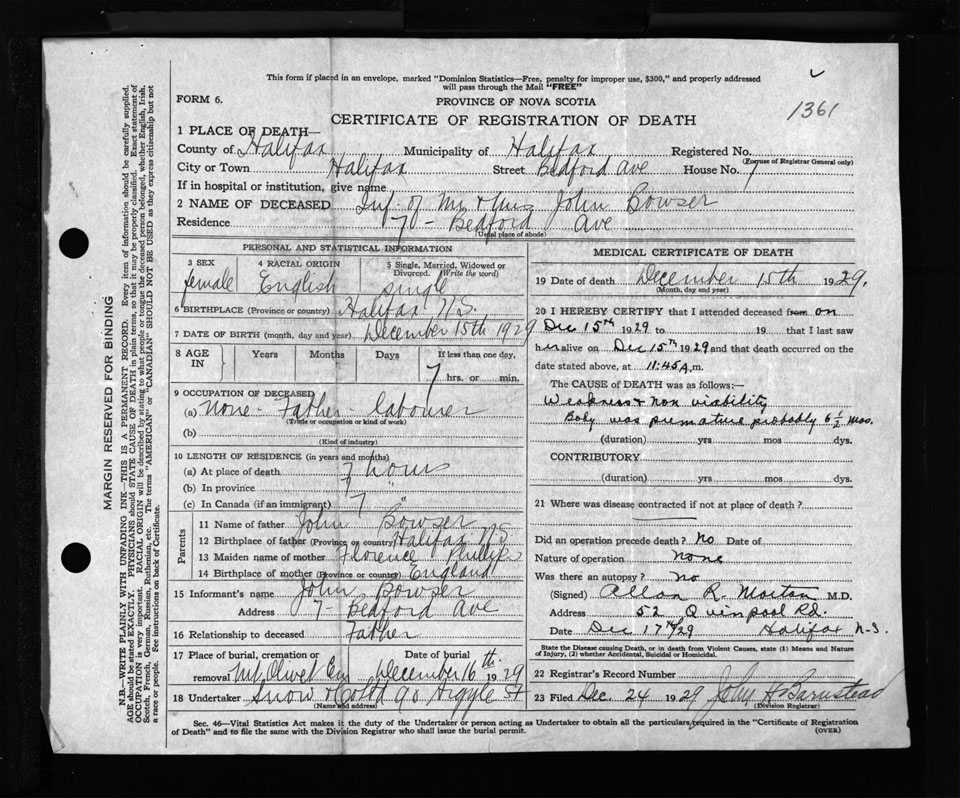 This form if placed in an envelope, marked "Dominion Statistics—Free, penalty for improper use, $300," and properly addressed
will pass through the Mail "FREE"
FORM 6.
PROVINCE OF NOVA SCOTIA
1361
CERTIFICATE OF REGISTRATION OF DEATH
1 PLACE OF DEATH—
County of Halifax Municipality of Halifax Registered No.
(For use of Registrar General only)
City or Town Halifax Street Bedford Ave House No. 7
If in hospital or institution, give name
2 NAME OF DECEASED Inf. of Mr & Mrs John Bowser
Residence 7 - Bedford Ave
(Usual place of abode)
PERSONAL AND STATISTICAL INFORMATION
3 SEX
female
4 RACIAL ORIGIN
English
5 Single, Married, Widowed or
Divorced. (Write the word)
single
6 BIRTHPLACE (Province or country) Halifax N.S.
7 DATE OF BIRTH (month, day and year) December 15th 1929
8 AGE IN
Years Months Days If less than one day,
7 hrs. or min.
9 OCCUPATION OF DECEASED
(a) None - Father - labourer
(Trade or occupation or kind of work)
(b)
(Kind of industry)
10 LENGTH OF RESIDENCE (in years and months)
(a) At place of death 7 hours
(b) In province
(c) In Canada (if an immigrant) 7 "
Parents
11 Name of father John Bowser
12 Birthplace of father (Province or country) Halifax N.S
13 Maiden name of mother Florence
14 Birthplace of mother (Province or country) England
15 Informant's name John Bowser
Address 7 - Bedford Ave
16 Relationship to deceased Father
17 Place of burial, cremation or Date of burial
removal Mt. Olivet Cem December 16th 1929
18 Undertaker Snow & Co Ltd 90 Argyle St
(Name and address)
MEDICAL CERTIFICATE OF DEATH
19 Date of death December 15th 1929.
(Month, day and year)
20 I HEREBY CERTIFY that I attended deceased from on
Dec 15th 1929 to 19 that I last saw
her alive on Dec 15th 1929 and that death occurred on the
date stated above, at 11:45 A.m.
The CAUSE OF DEATH was as follows:—
Weakness & non viability
Baby was premature probably 6 1/2 mos.
(duration) yrs mos dys.
CONTRIBUTORY
(duration) yrs mos dys.
21 Where was disease contracted if not at place of death?
Did an operation precede death? No Date of
Nature of operation none
Was there an autopsy? No
(Signed) Allan R. Morton M.D.
Address 52 Quinpool Rd.
Date Dec 17th/29 Halifax N.S.
State the Disease causing Death, or in death from Violent Causes, state (1) Means and Nature
of Injury, (2) whether Accidental, Suicidal or Homicidal.
22 Registrar's Record Number
23 Filed Dec. 24 1929 John H Barnstead
(Division Registrar)
Sec. 46—Vital Statistics Act makes it the duty of the Undertaker or person acting as Undertaker to obtain all the particulars required in the "Certificate of Registration
of Death" and to file the same with the Division Registrar who shall issue the burial permit.
(OVER)
MARGIN RESERVED FOR BINDING
N.B.—WRITE PLAINLY WITH UNFADING INK—THIS IS A PERMANENT RECORD. Every item of information should be carefully supplied.
AGE should be stated EXACTLY. PHYSICIANS should STATE CAUSE OF DEATH in plain terms, so that it may be properly classified. Exact statement of
OCCUPATION is very important. RACIAL ORIGIN will be described by stating to what people or tongue the deceased person belonged, whether English, Irish,
Scotch, French, German, Russian, Ruthenian, etc. The terms "AMERICAN" or "CANADIAN" SHOULD NOT BE USED as they express citizenship but not
a race or people. See instructions on back of Certificate.